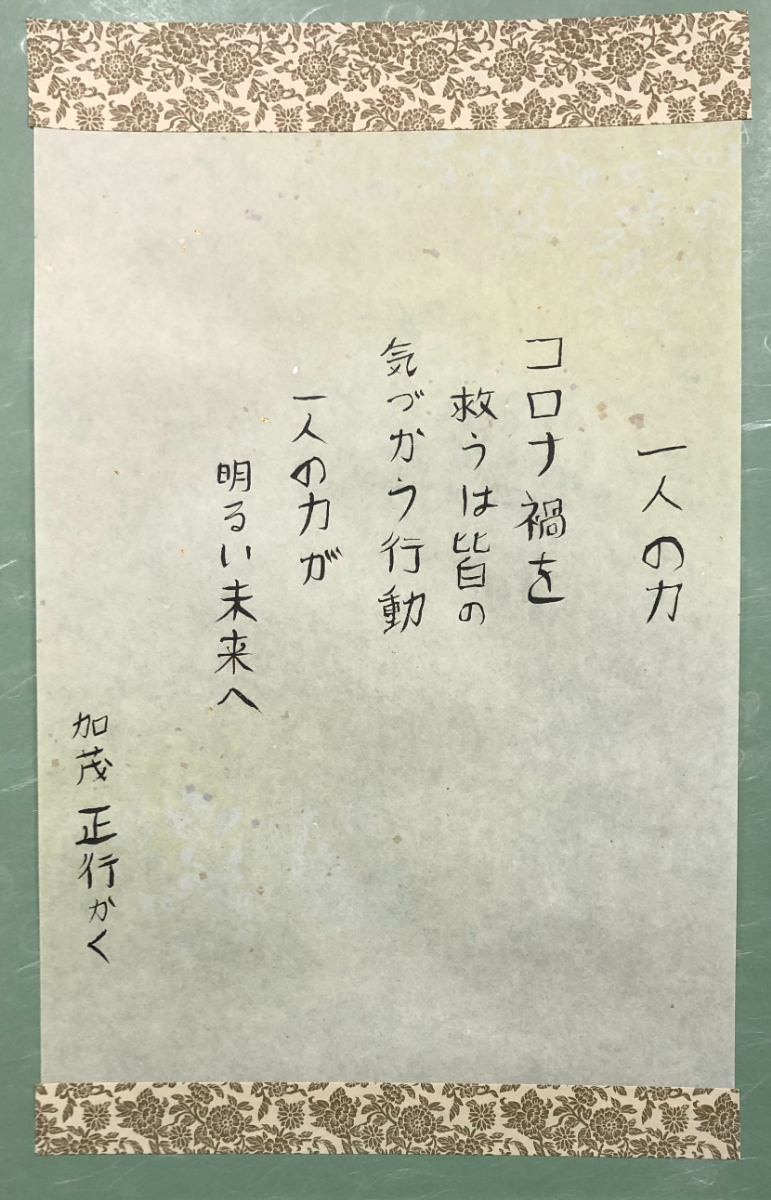 一人の力
コロナ禍を
救うは皆の
気づかう行動
一人の力が
明るい未来へ
加茂正行かく